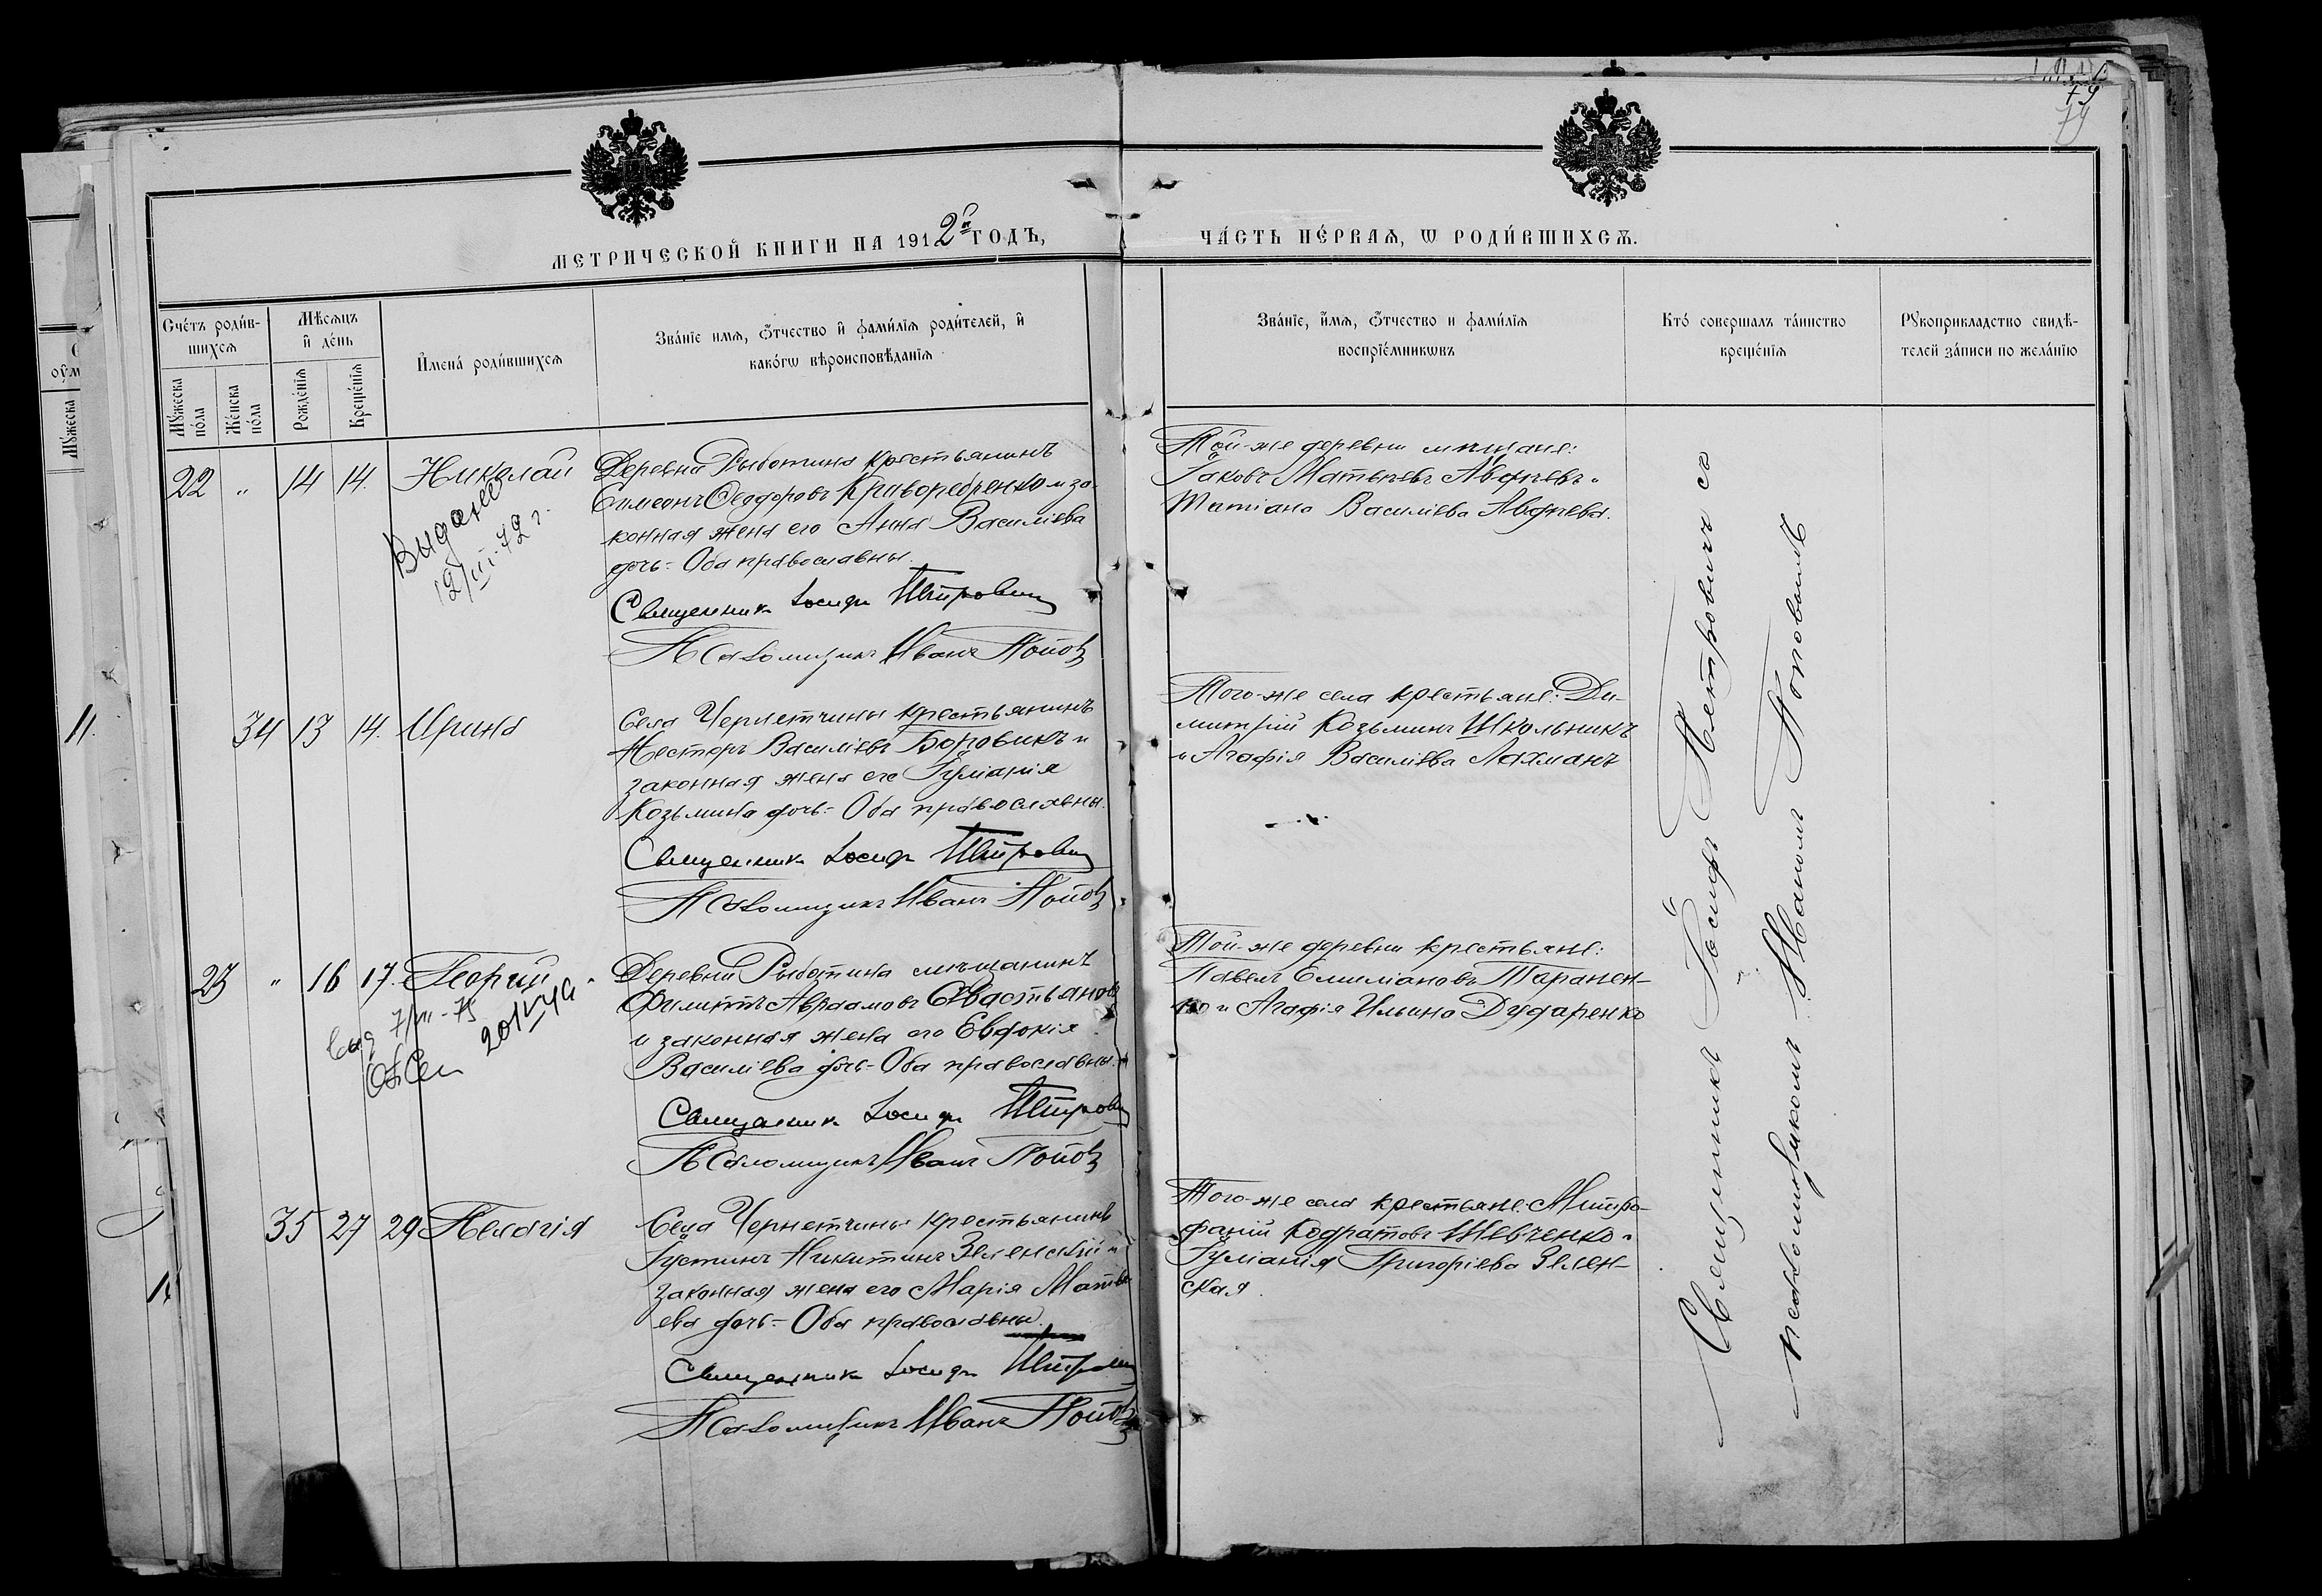 79
МЕТРИЧЕСКОЙ КНИГИ НА 1912й ГОДЪ,
ЧА́СТЬ ПЕ́РВАѦ, Ѡ РОДИ́ВШИХСѦ.
Сче́тъ роди́в-
шихсѧ
Мꙋ́жеска
по́ла
Же́нска
по́ла
Мѣ́сѧцъ
и҆ де́нь
Рожде́нїѧ
Креще́нїѧ
И҆мена̀ роди́вшихсѧ
Зва́нїе имѧ, ѻ҆́тчество и҆ фами́лїѧ роди́телей, и҆
како́гѡ вѣроисповѣ́данїѧ
Зва́нїе, и҆́мѧ, ѻ҆́тчество и фами́лїѧ
воспрїе́мникѡвъ
Кто̀ соверша́лъ та́инство
креще́нїѧ
Рꙋкоприкладство свидѣ́-
телей за́писи по жела́нїю
22 " 14 14. Николай
Выдано
Деревни Рыботина крестьянинъ
Симеонъ Ѳеодоровъ Криворебренко и за-
конная жена его Анна Василіева
дочь - Оба православны.
Священникъ Іосифъ Петровичъ
Псаломщикъ Иванъ Поповъ
Той-же деревни мѣщане:
Іаковъ Матѳіевъ Авдѣевъ и
Татіана Василіева Авдѣева.
34 13 14. Ирина
Села Чернетчины крестьянинъ
Несторъ Василіевъ Боровикъ и
законная жена его Іуліанія
Козьмина дочь - Оба православны.
Священникъ Іосифъ Петровичъ
Псаломщикъ Иванъ Поповъ
Того-же села крестьяне: Ди-
митрій Козьминъ Школьникъ
и Агафія Василіева Лахманъ
23 " 16 17. Георгій
Деревни Рыботина мѣщанинъ
Филиппъ Авраамовъ Севастьяновъ
и законная жена его Евдокія
Василіева дочь - Оба православны.
Священникъ Іосифъ Петровичъ
Псаломщикъ Иванъ Поповъ
Той-же деревни крестьяне:
Павелъ Емиліановъ Таранен-
ко и Агафія Ильина Дударенко
35 27 29 Пелагія
Села Чернетчины крестьянинъ
Іустинъ Никитинъ Зеленскій и
законная жена его Марія Матѳі-
ева дочь - Оба православны.
Священникъ Іосифъ Петровичъ
Псаломщикъ Иванъ Поповъ
Того-же села крестьяне: Митро-
фаній Кодратовъ Шевченко и
Іуліанія Григоріева Зелен-
ская.
Священникъ Іосифъ Петровичъ со
псаломщикомъ Иваномъ Поповымъ